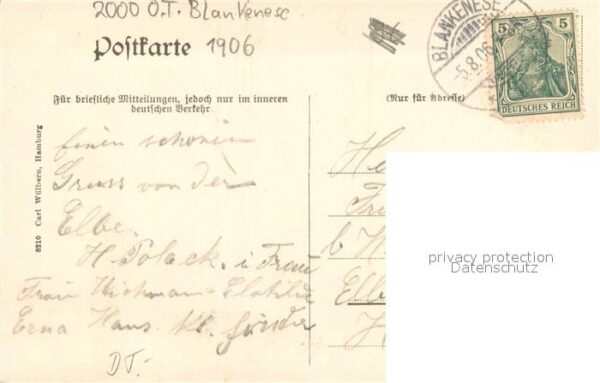 2000 O.T. Blankenese
Postkarte 1906
BLANKENESE
-5.8.06
5 5
DEUTSCHES REICH
Für briefliche Mitteilungen, jedoch nur im inneren
deutschen Verkehr.
(Nur für Adresse)
8210 Carl Wülbern, Hamburg
Einen schönen
Gruss von der
Elbe.
H. Polack. u Frau
Frau
Erna Hans. Kl.
DT.-
privacy protection
Datenschutz